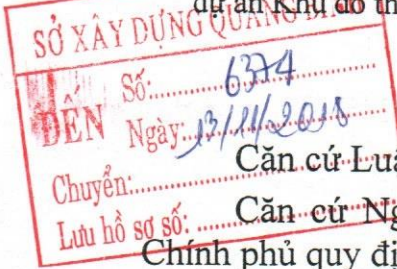 dự án Khu đô th
SỞ XÂY DỰNG QUẢNG
Số: 6374
ĐẾN
Ngày: 13/11/2018
Chuyển:
Lưu hồ sơ số:
Căn cứ Luậ
Căn cứ Ng
Chính phủ quy đị